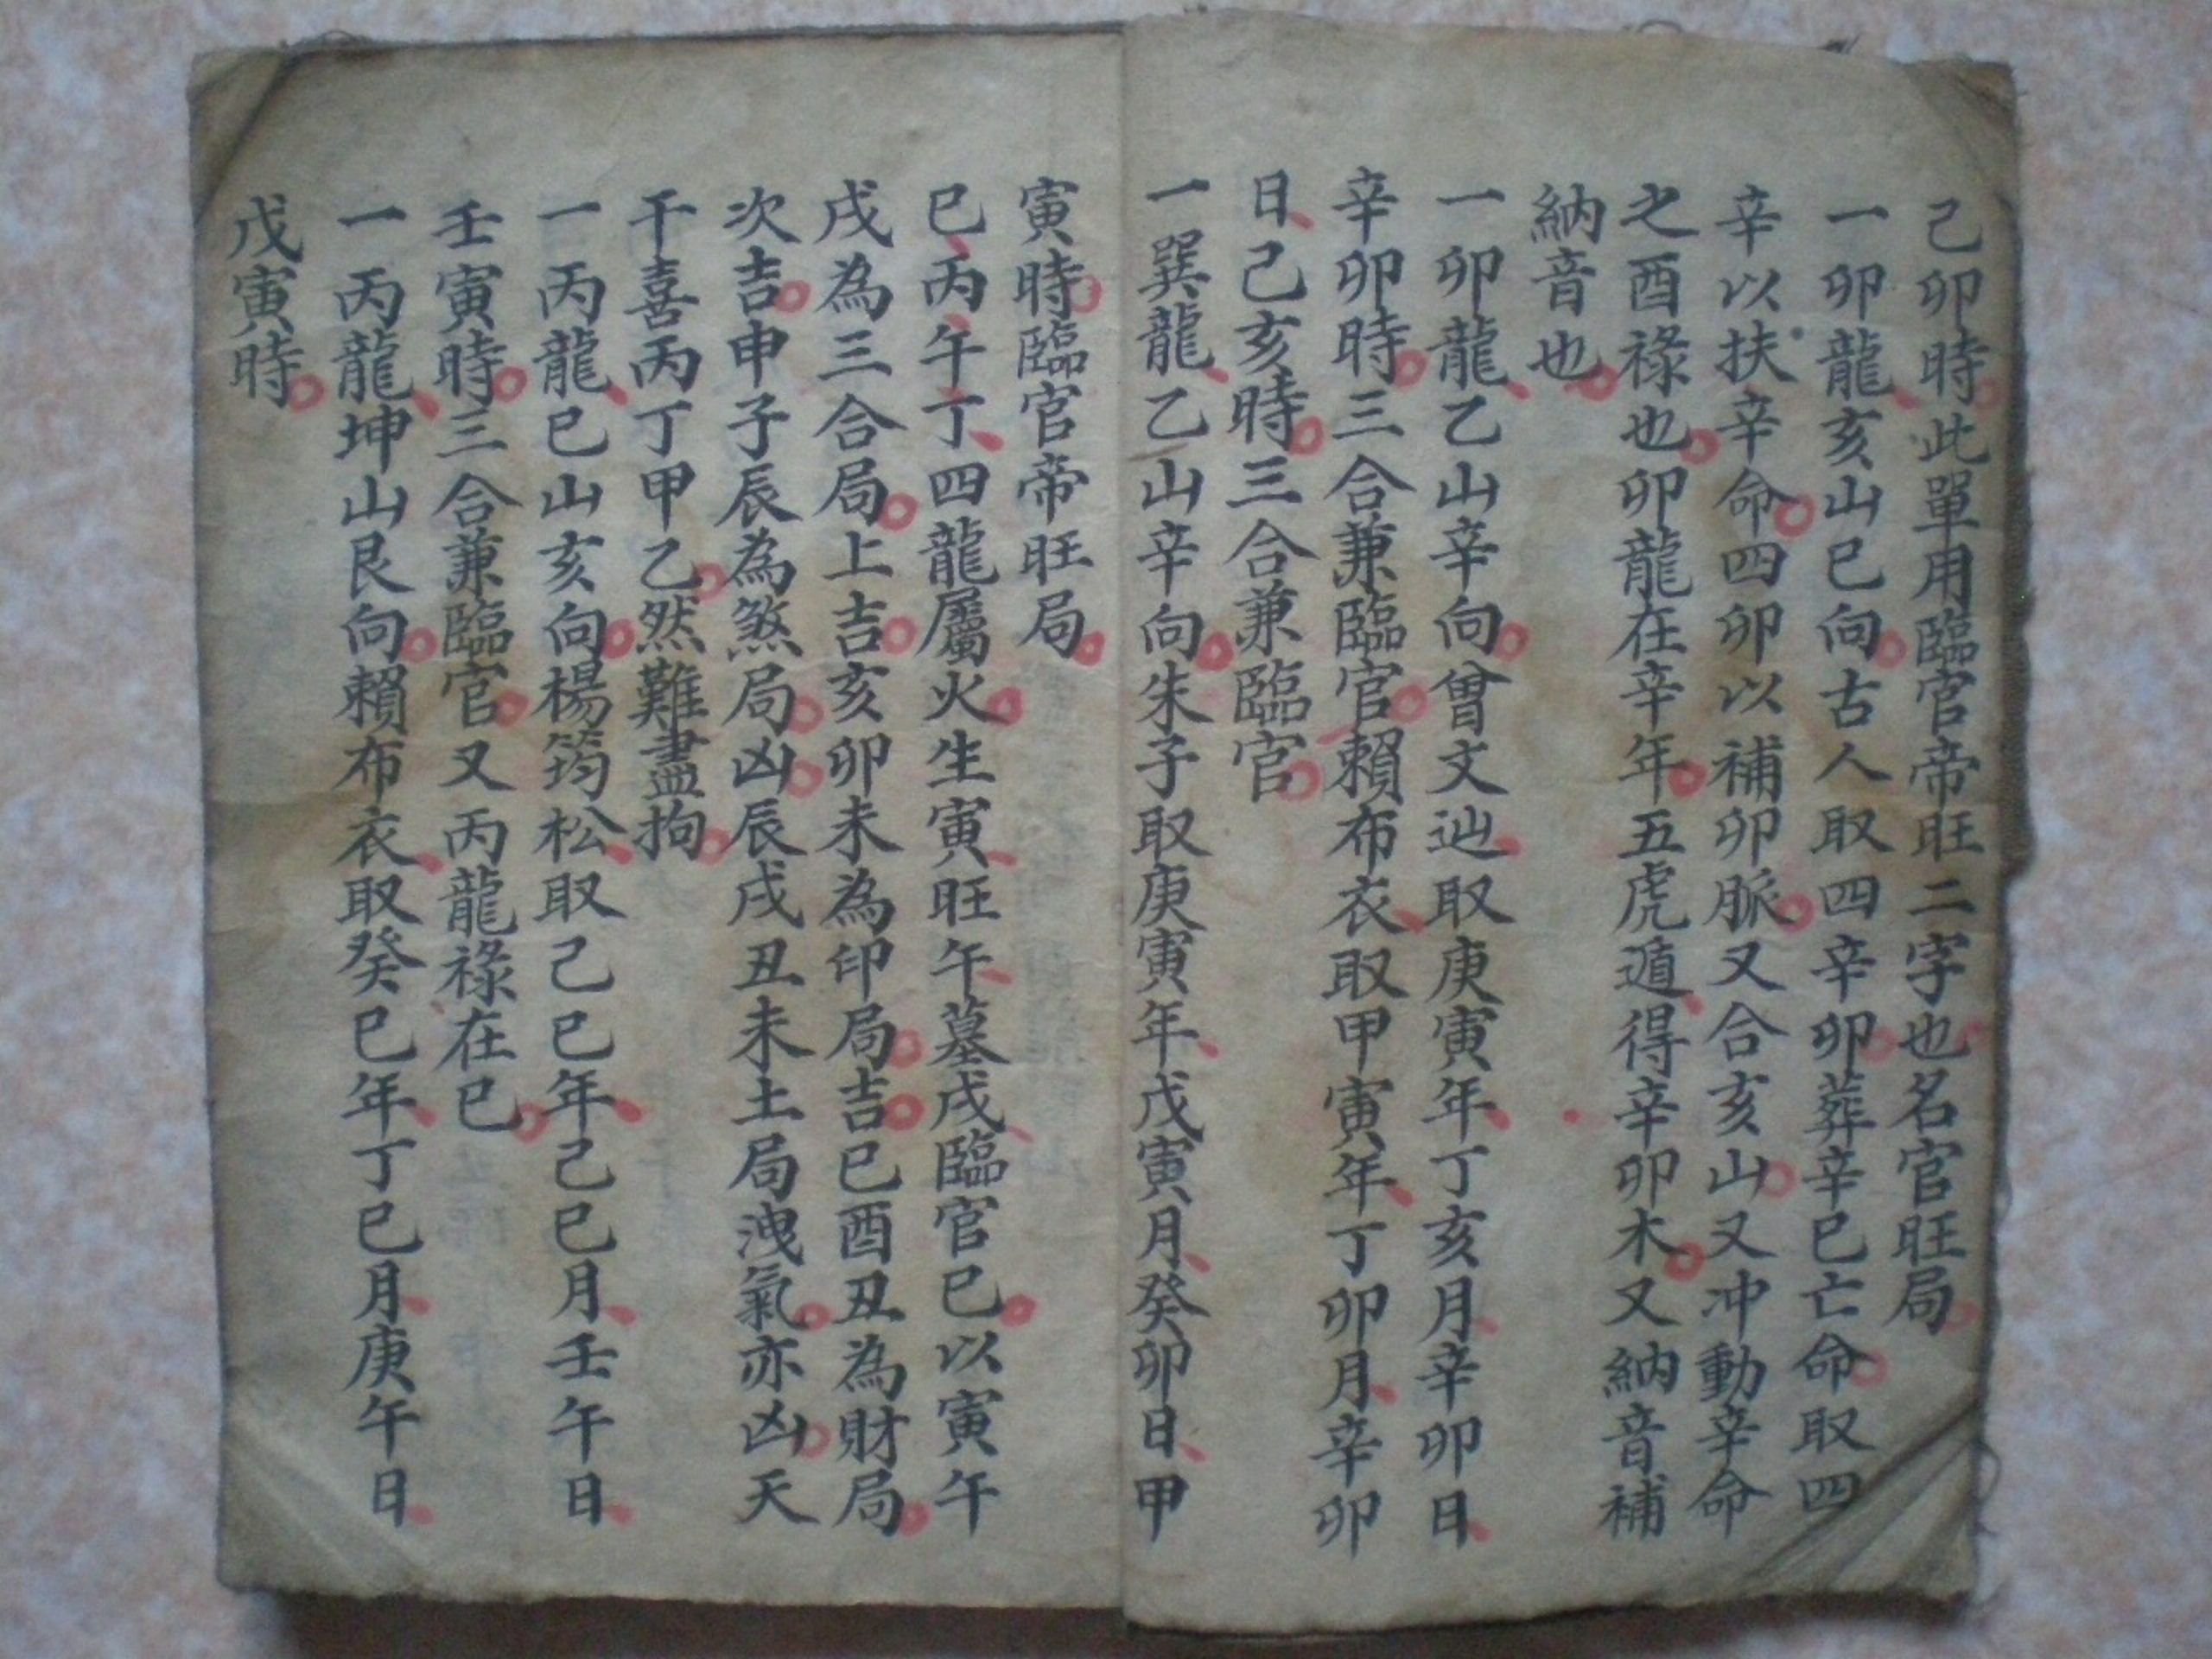 己卯時此單用臨官帝旺二字也名官旺局
一卯龍亥山巳向古人取四辛卯葬辛巳亡命取四
辛以扶辛命四卯以補卯脈又合亥山又冲動辛命
之酉祿也卯龍在辛年五虎遁得辛卯木又納音補
納音也
一卯龍乙山辛向曾文辿取庚寅年丁亥月辛卯日
辛卯時三合兼臨官賴布衣取甲寅年丁卯月辛卯
日己亥時三合兼臨官
一巽龍乙山辛向朱子取庚寅年戊寅月癸卯日甲
寅時臨官帝旺局
巳丙午丁四龍屬火生寅旺午墓戌臨官巳以寅午
戌為三合局上吉亥卯未為印局吉巳酉丑為財局
次吉申子辰為煞局凶辰戌丑未土局洩氣亦凶天
干喜丙丁甲乙然難盡拘
一丙龍巳山亥向楊筠松取己巳年己巳月壬午日
壬寅時三合兼臨官又丙龍祿在巳
一丙龍坤山艮向賴布衣取癸巳年丁巳月庚午日
戊寅時